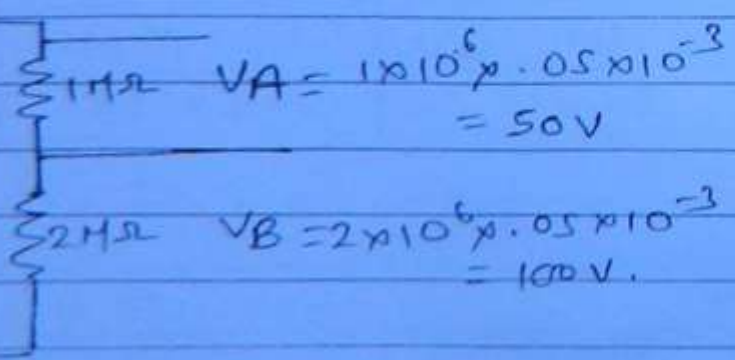 1MΩ VA = 1×10⁶×.05×10⁻³
= 50V
2MΩ VB = 2×10⁶×.05×10⁻³
= 100V.